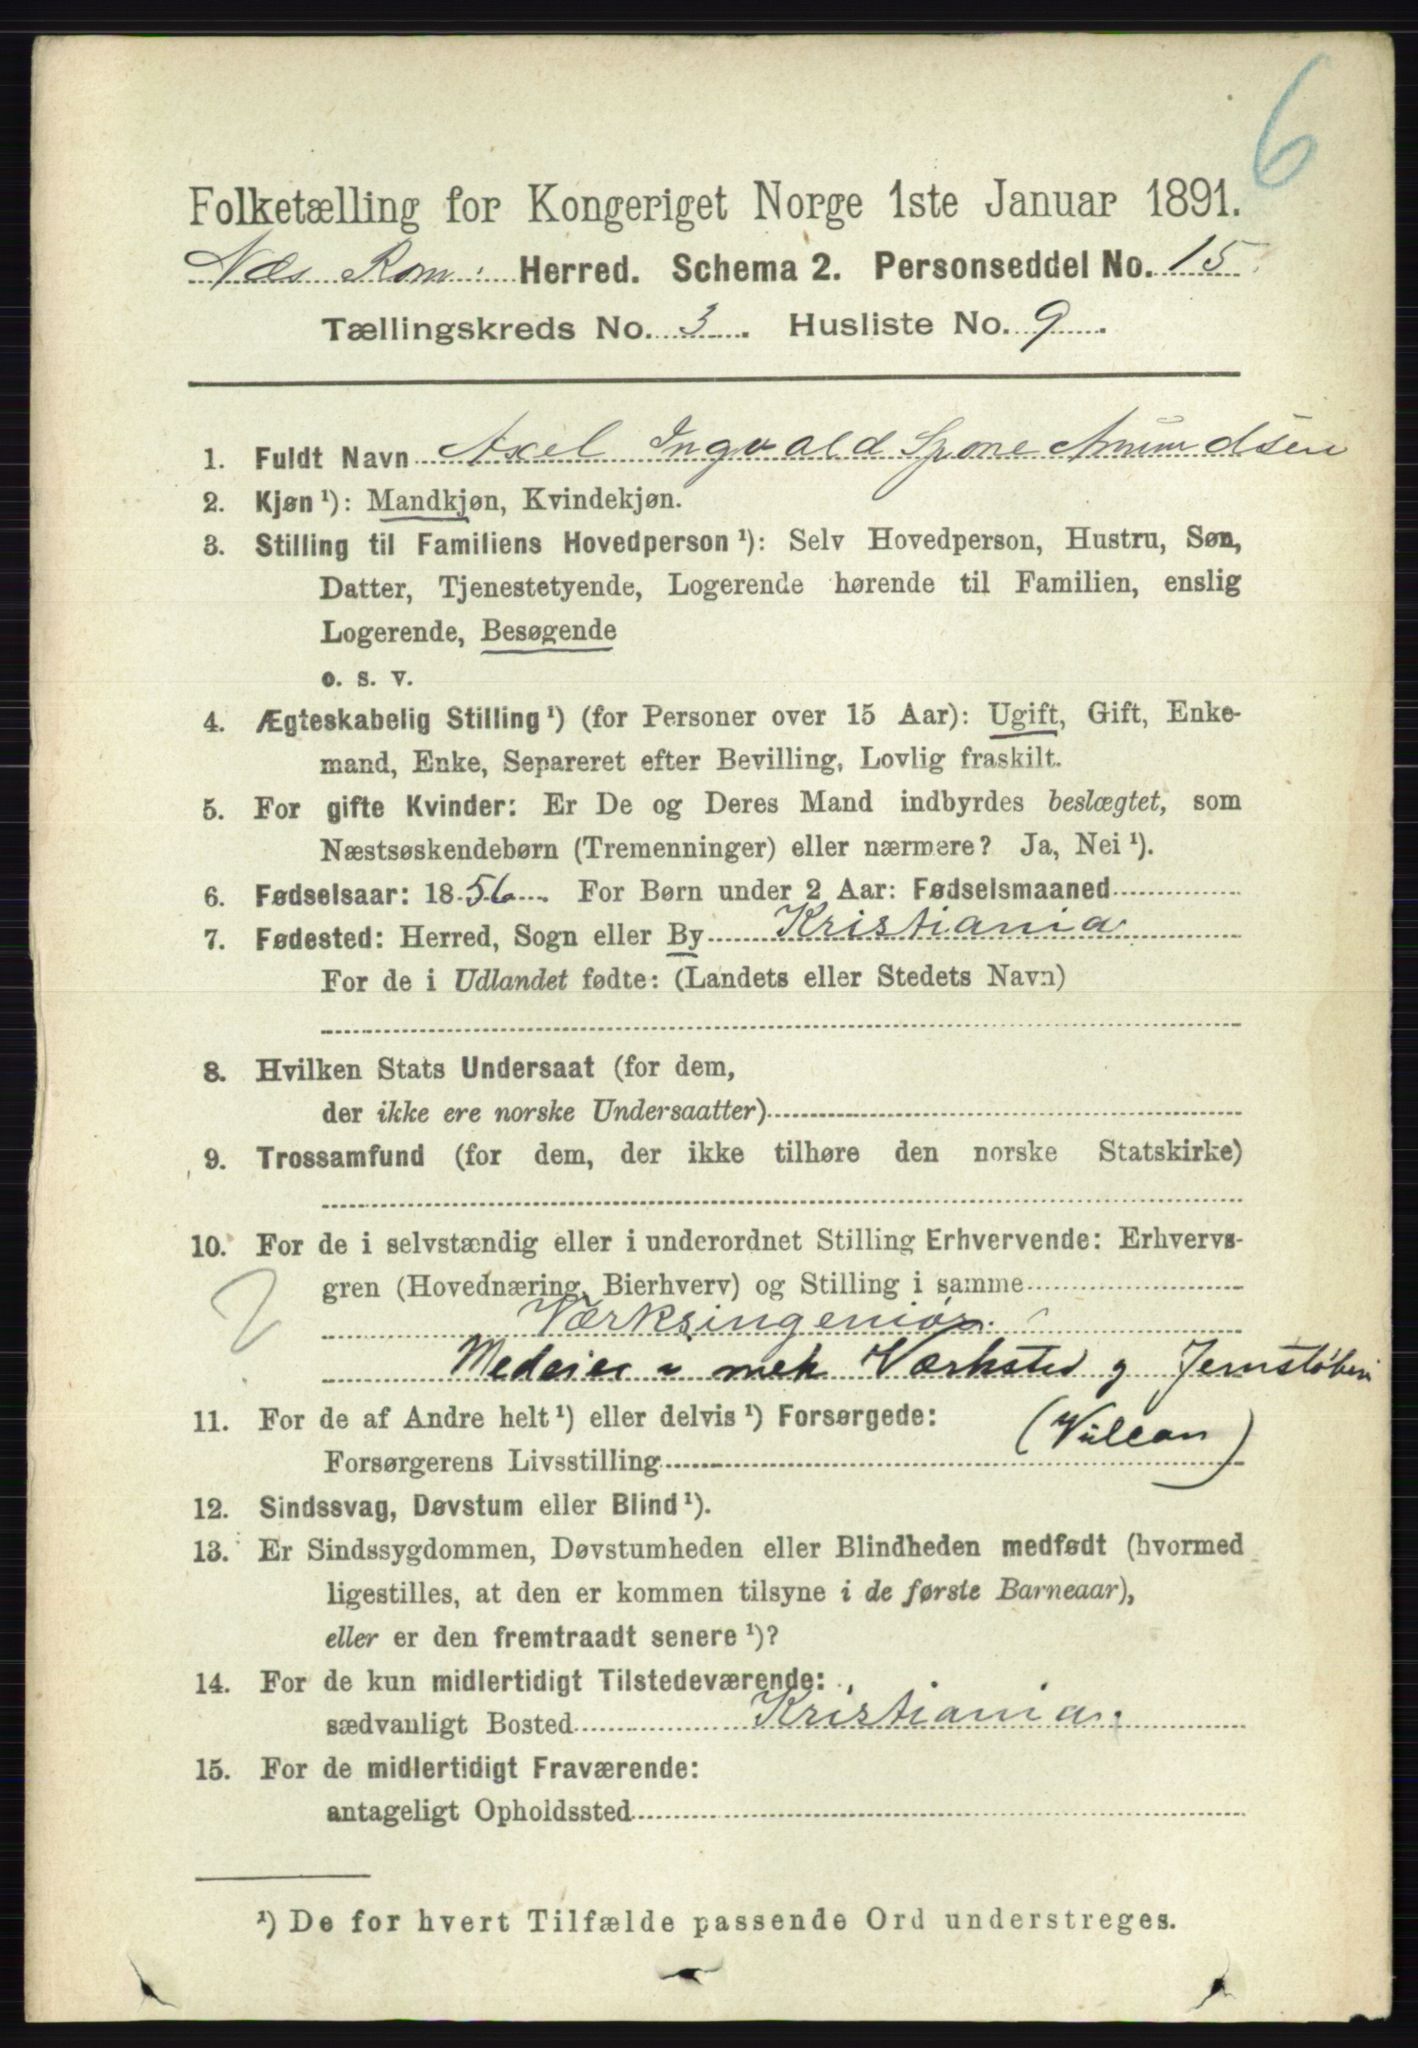 6
Folketælling for Kongeriget Norge 1ste Januar 1891.
Næs Rom: Herred. Schema 2. Personseddel No. 15.
Tællingskreds No. 3. Husliste No. 9.
1. Fuldt Navn Axel Ingvald Spone Amundsen
2. Kjøn ¹): Mandkjøn, Kvindekjøn.
3. Stilling til Familiens Hovedperson ¹): Selv Hovedperson, Hustru, Søn,
Datter, Tjenestetyende, Logerende hørende til Familien, enslig
Logerende, Besøgende
o. s. v.
4. Ægteskabelig Stilling ¹) (for Personer over 15 Aar): Ugift, Gift, Enke-
mand, Enke, Separeret efter Bevilling, Lovlig fraskilt.
5. For gifte Kvinder: Er De og Deres Mand indbyrdes beslægtet, som
Næstsøskendebørn (Tremenninger) eller nærmere? Ja, Nei ¹).
6. Fødselsaar: 1856. For Børn under 2 Aar: Fødselsmaaned
7. Fødested: Herred, Sogn eller By Kristiania
For de i Udlandet fødte: (Landets eller Stedets Navn)
8. Hvilken Stats Undersaat (for dem,
der ikke ere norske Undersaatter)
9. Trossamfund (for dem, der ikke tilhøre den norske Statskirke)
10. For de i selvstændig eller i underordnet Stilling Erhvervende: Erhvervs-
gren (Hovednæring, Bierhverv) og Stilling i samme
Værksingeniør.
Medeier i mek Værksted og Jernstøberi
11. For de af Andre helt ¹) eller delvis ¹) Forsørgede: (Vulcan)
Forsørgerens Livsstilling
12. Sindssvag, Døvstum eller Blind ¹).
13. Er Sindssygdommen, Døvstumheden eller Blindheden medfødt (hvormed
ligestilles, at den er kommen tilsyne i de første Barneaar),
eller er den fremtraadt senere ¹)?
14. For de kun midlertidigt Tilstedeværende:
sædvanligt Bosted Kristiania.
15. For de midlertidigt Fraværende:
antageligt Opholdssted
¹) De for hvert Tilfælde passende Ord understreges.